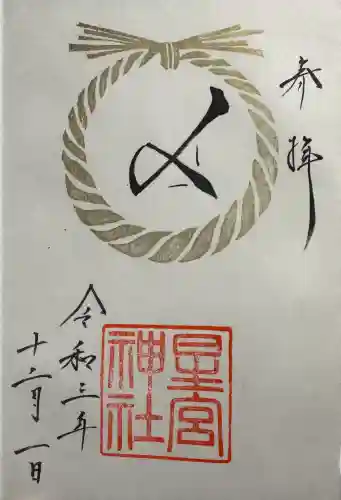 参拝
〆
星宮
神社
令和三年
十二月一日